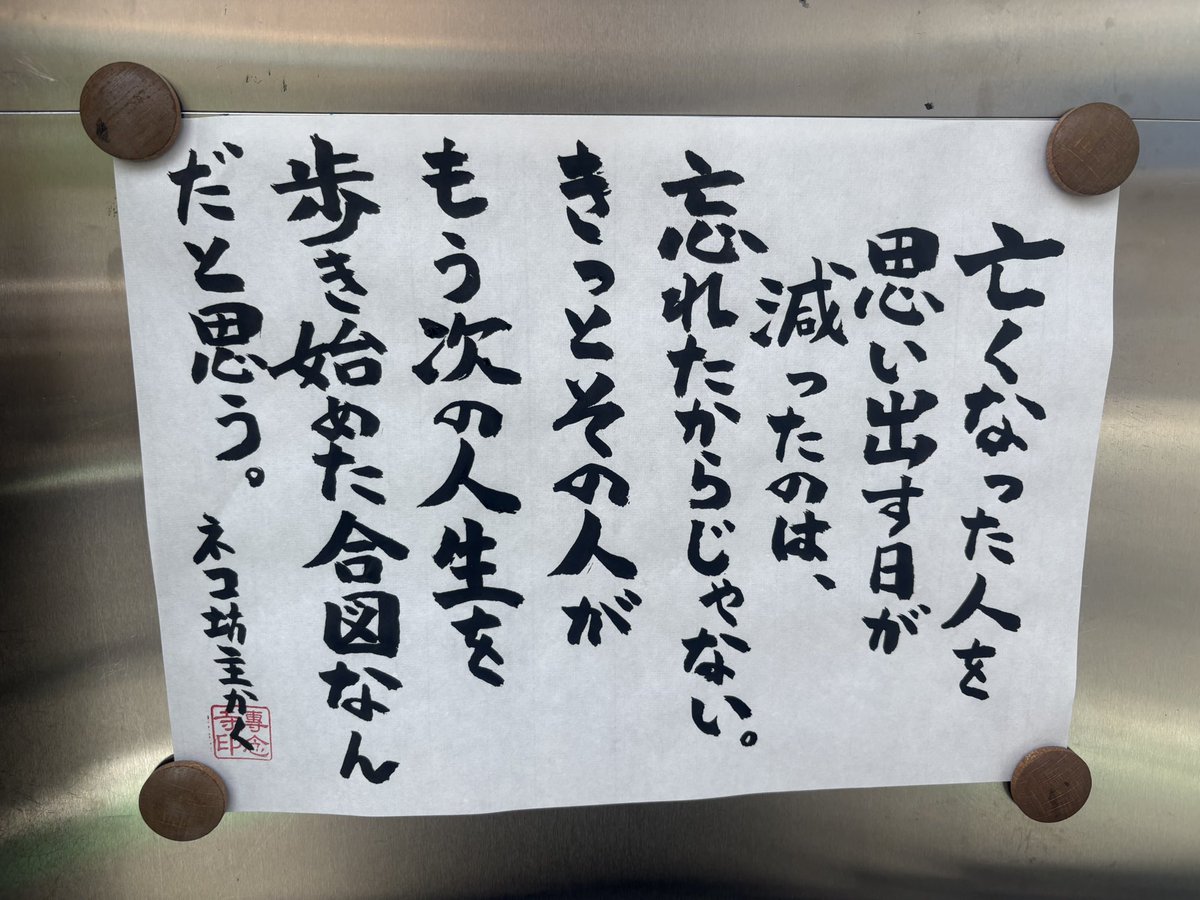 亡くなった人を
思い出す日が
減ったのは、
忘れたからじゃない。
きっとその人が
もう次の人生を
歩き始めた合図なん
だと思う。
ネコ坊主かく
專念寺印